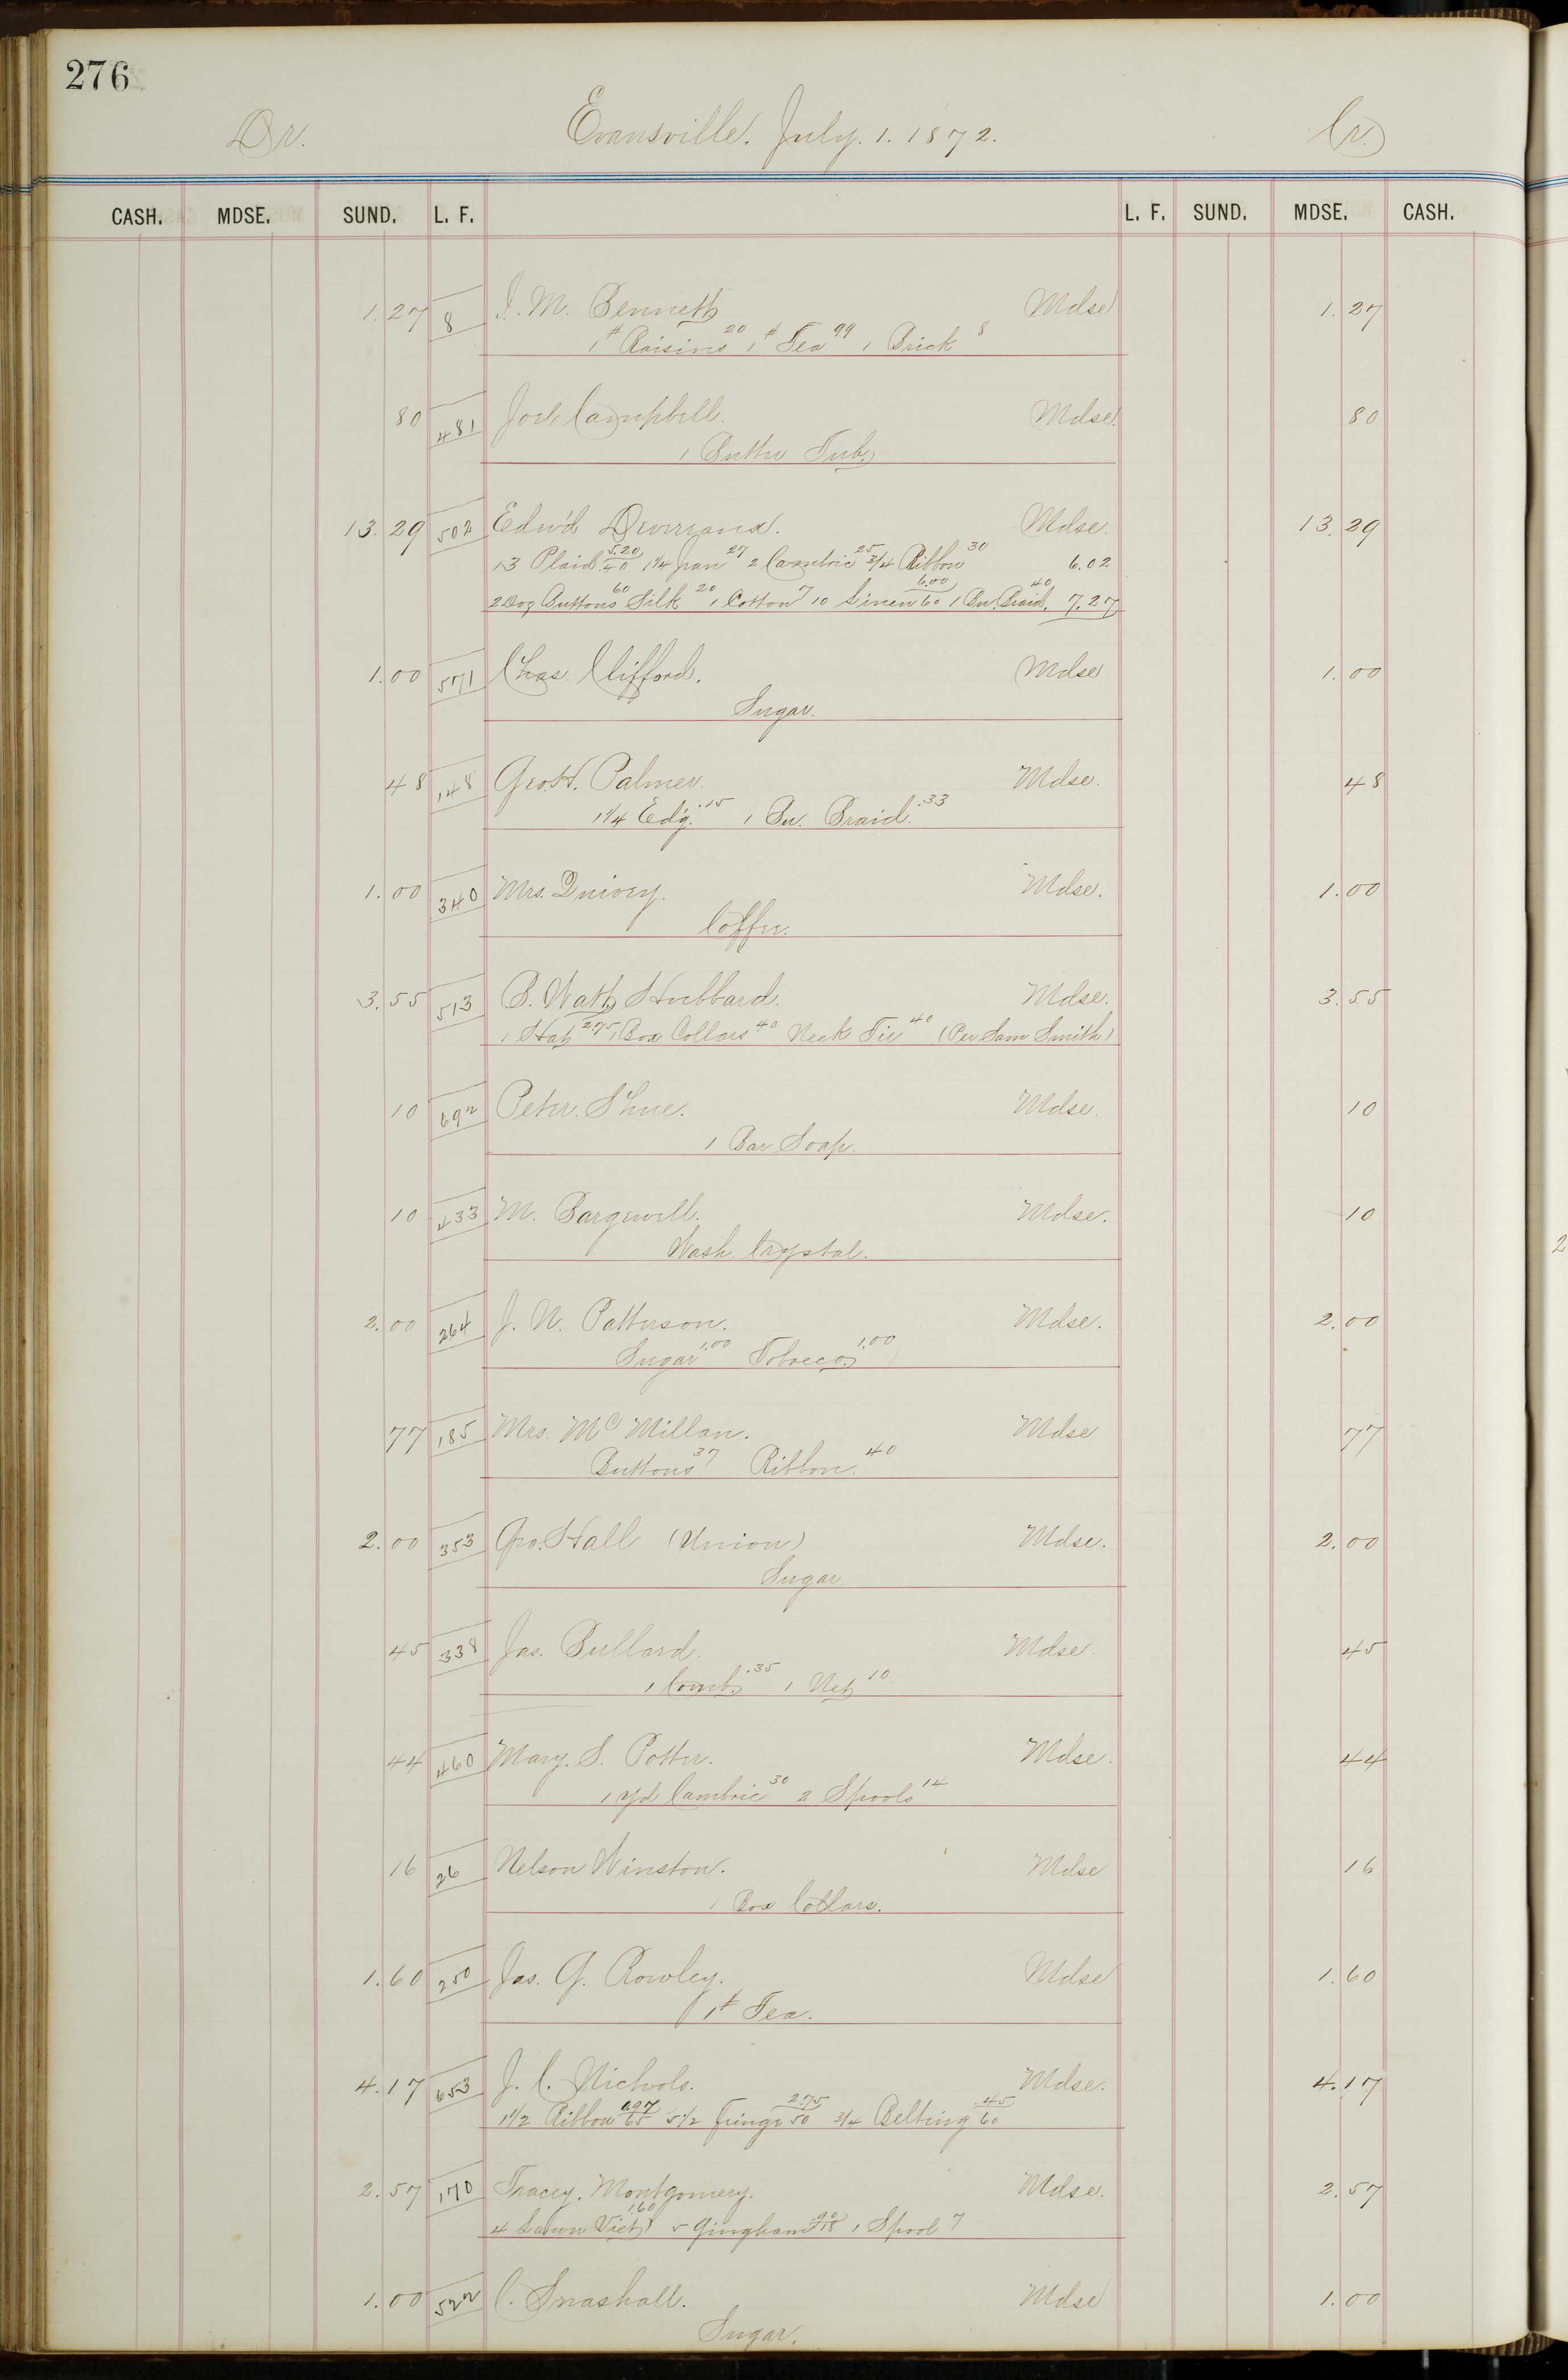 276
Dr. Evansville. July. 1. 1872. Cr.
CASH. MDSE. SUND. L. F. L. F. SUND. MDSE. CASH.
1.27 8 J. M. Bennett Mdse 1.27
1# Raisins 20 1# Tea 99 1 Brick 8
80 481 Joel Campbell. Mdse. 80
1 Butter Tub.
13.29 502 Edw'd Mdse. 13.29
13 Plaid 5.20/40 1 1/4 Jean 27 2 Cambric 25 3/4 Ribbon 30 6.02
2 Doz Buttons 60 Silk 20 1 Cotton 7 10 Linen 6.00/60 1 Bu. Braid. 40 7.27
1.00 571 Chas. Clifford. Mdse 1.00
Sugar.
48 148 Geo. H. Palmer. Mdse. 48
1 1/4 Ed'g. .15 1 Bu. Braid. .33
1.00 340 Mrs. Quivey. Mdse. 1.00
Coffee.
3.55 513 B. Wath Hubbard. Mdse. 3.55
1 Hat 2.75 1 Box Collars 40 Neck Tie 40 (Per Sam Smith)
10 692 Peter. Shue. Mdse. 10
1 Bar Soap.
10 433 M. Bargewell. Mdse. 10
Wash. Crystal.
2.00 264 J. W. Patterson. Mdse. 2.00
Sugar 1.00 Tobacco 1.00
77 185 Mrs. McMillan. Mdse 77
Buttons 37 Ribbon. 40
2.00 353 Geo. Hall (Union) Mdse. 2.00
Sugar.
45 338 Jas. Bullard. Mdse. 45
1 Comb .35 1 Net 10
44 460 Mary. S. Potter. Mdse. 44
1 yd Cambric 30 2 Spools 14
16 26 Nelson Winston. Mdse 16
1 Box Collars.
1.60 250 Jas. G. Rowley. Mdse 1.60
1# Tea.
4.17 653 J. C. Nichols. Mdse. 4.17
1 1/2 Ribbon .97/65 5 1/2 Fringe 2.75/50 3/4 Belting .45/60
2.57 170 Tracey. Montgomery. Mdse. 2.57
4 Lawn Vict 1.60 5 Gingham .90/18 1 Spool 7
1.00 522 C. Snashall. Mdse 1.00
Sugar.